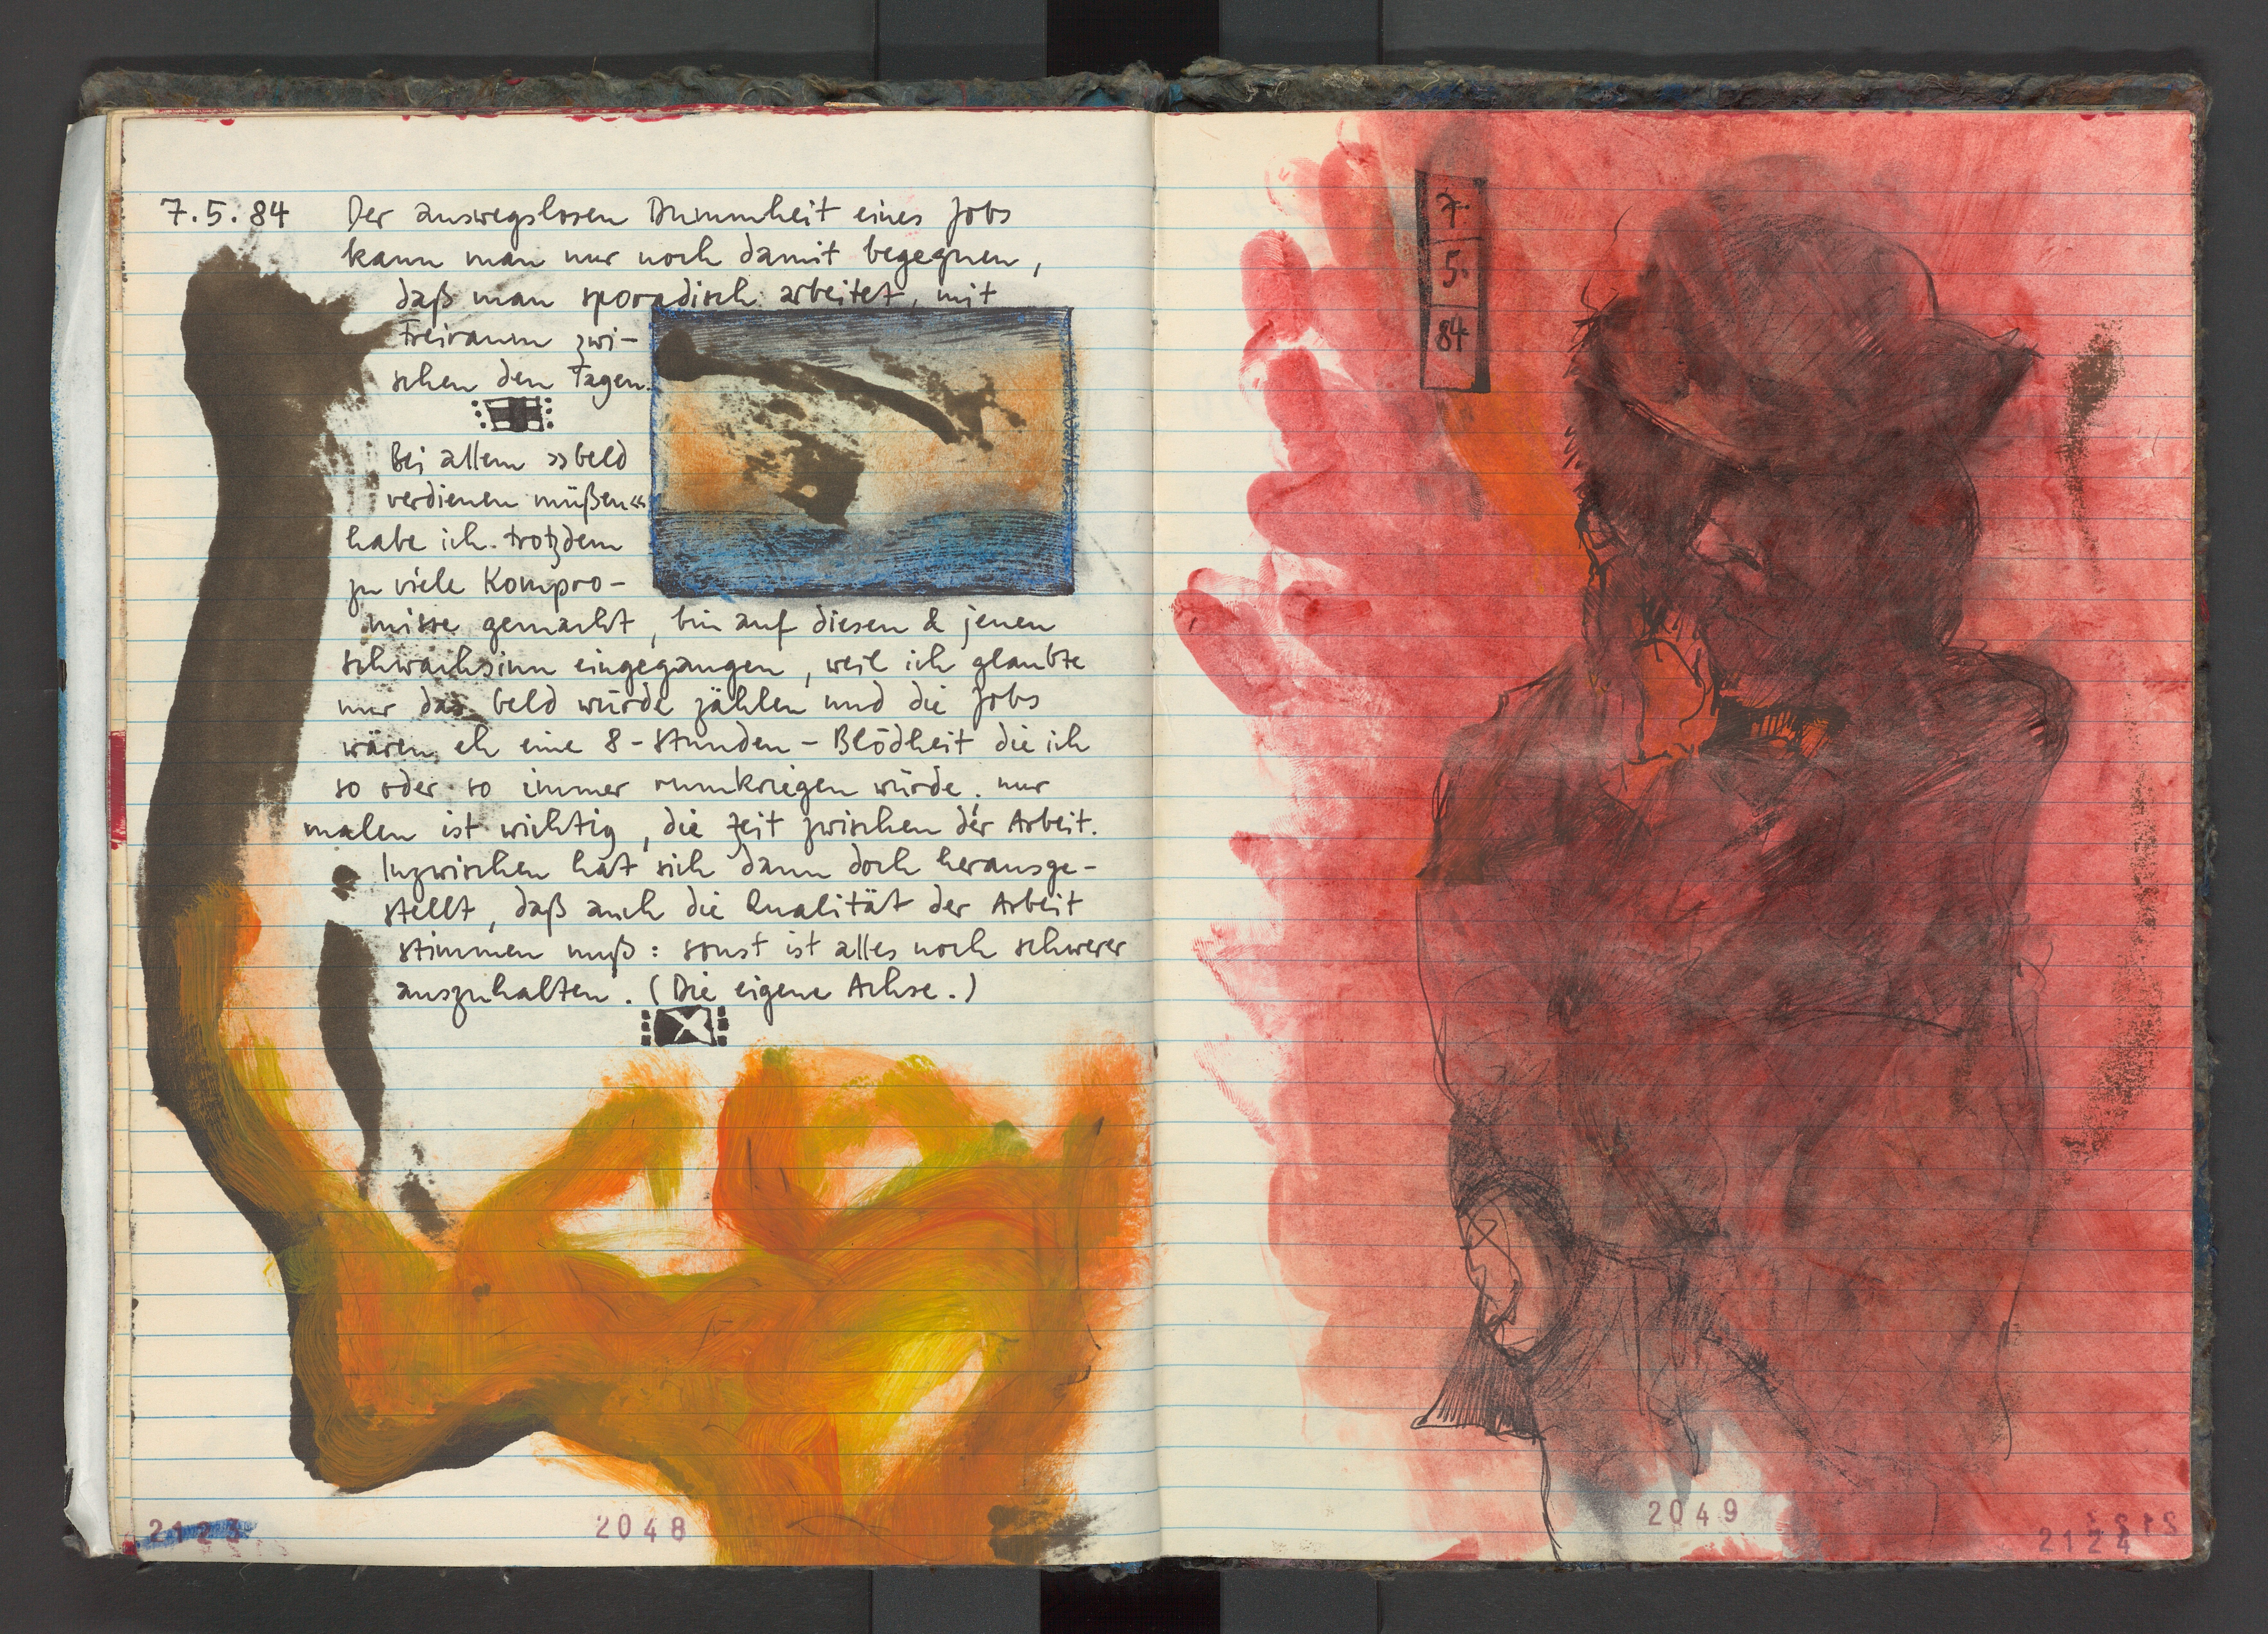 7.5.84 Der auswegslosen Dummheit eines Jobs
kann man nur noch damit begegnen,
daß man sporadisch arbeitet, mit
Freiraum zwi-
schen den Tagen.
Bei allem »Geld
verdienen müßen«
habe ich trotzdem
zu viele Kompro-
misse gemacht, bin auf diesen & jenen
schwachsinn eingegangen, weil ich glaubte
nur das Geld würde zählen und die Jobs
wären eh eine 8-Stunden-Blödheit die ich
so oder so immer rumkriegen würde. nur
malen ist wichtig, die Zeit zwischen der Arbeit.
Inzwischen hat sich dann doch herausge-
stellt, daß auch die Qualität der Arbeit
stimmen muß: sonst ist alles noch schwerer
auszuhalten. (Die eigene Achse.)
2123
2048
7.
5.
84
2049
2124